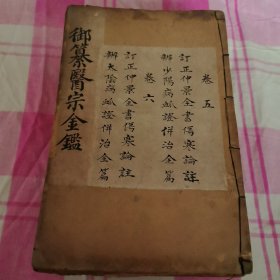 御纂醫宗金鑑
卷五
訂正仲景全書傷寒論註
辨少陽病脈證併治全篇
卷六
訂正仲景全書傷寒論註
辨太陰病脈證併治全篇